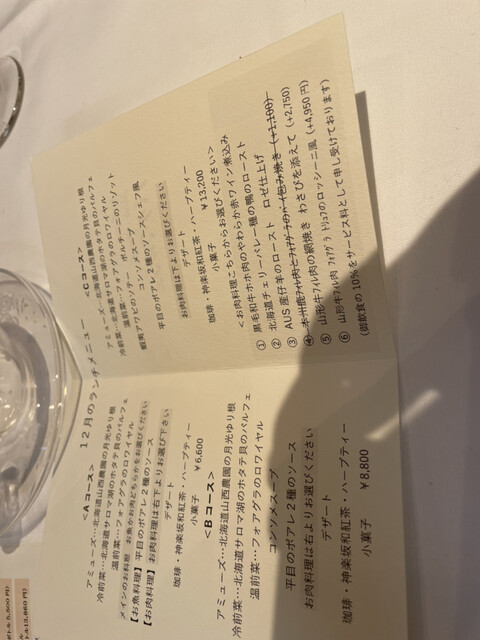 １２月のランチメニュー
<Aコース>
アミューズ…北海道山西農園の月光ゆり根
冷前菜…北海道サロマ湖のホタテ貝のパルフェ
温前菜…フォアグラのロワイヤル
メインのお料理 お魚かお肉どちらかをお選びください
【お魚料理】平目のポアレ２種のソース
【お肉料理】お肉料理は右下よりお選び下さい
デザート
珈琲・神楽坂和紅茶・ハーブティー
小菓子
￥6,600
<Bコース>
アミューズ…北海道山西農園の月光ゆり根
冷前菜…北海道サロマ湖のホタテ貝のパルフェ
温前菜…フォアグラのロワイヤル
コンソメスープ
平目のポアレ２種のソース
お肉料理は右よりお選びください
デザート
珈琲・神楽坂和紅茶・ハーブティー
小菓子
￥8,800
<Cコース>
アミューズ…北海道山西農園の月光ゆり根
冷前菜…北海道サロマ湖のホタテ貝のパルフェ
温前菜…フォアグラのロワイヤル
蝦夷アワビのソテー ポルチーニのリゾット
コンソメスープ
平目のポアレ２種のソースシェフ風
お肉料理は下よりお選びください
デザート
珈琲・神楽坂和紅茶 ハーブティー
小菓子
￥13,200
<お肉料理こちらからお選びください>
① 黒毛和牛ホホ肉のやわらか赤ワイン煮込み
② 北海道チェリーバレー種の鴨のロースト
③ AUS産仔羊のロースト ロゼ仕上げ
④ 本州鹿ﾌｨﾚ肉とﾌｫｱｸﾞﾗのパイ包み焼き (+1,100)
⑤ 山形牛ﾌｨﾚ肉の網焼き わさびを添えて (+2,750)
⑥ 山形牛ﾌｨﾚ肉 ﾌｫｱｸﾞﾗ ﾄﾘｭﾌのロッシーニ風 (+4,950円)
(御飲食の10%をサービス料として申し受けております)